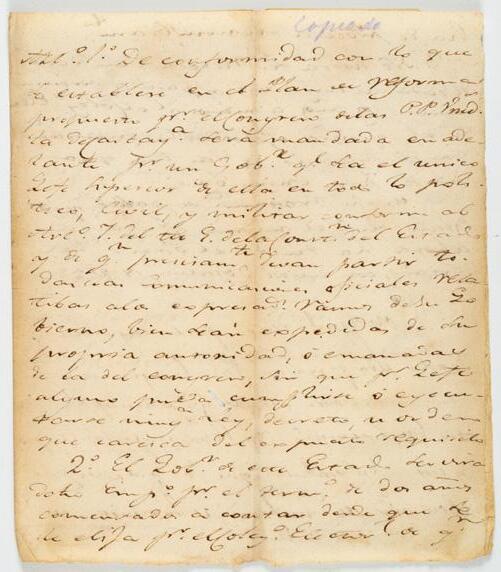 Copiado
Artº. 1º. De conformidad con lo que
se establece en el Plan de reforma
propuesto pr. el Congreso de las P.P. Unid.
la será mandada en ade-
lante pr. un Gobr. qe. sea el unico
Gefe Superior de ella en todo lo poli-
tico, civil, y militar conforme al
Artº. 7. del tit. de la Constn. del Estado
y de qn. precisamte. deban partir to-
das las comunicaciones oficiales rela-
tibas a los expresads. Ramos de su Go
bierno, bien sean expedidas de su
propria autoridad, ó emanadas
de la del congreso, sin que pr. Gefe
alguno pueda cumplirse ó ejecu-
tarse ningna. ley, decreto, u orden
que caresca del expuesto requisito
2º. El Gobr. de este Estado servirá
dho Empº. pr. el termº. de dos años
comenzados á contar desde que se
le elija pr. el Colegº. Elector. de qe.